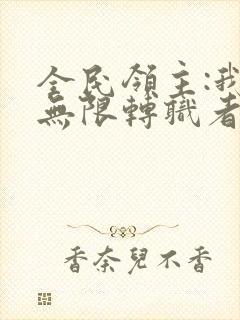 全民領主:我
無限轉職者
香奈兒不香